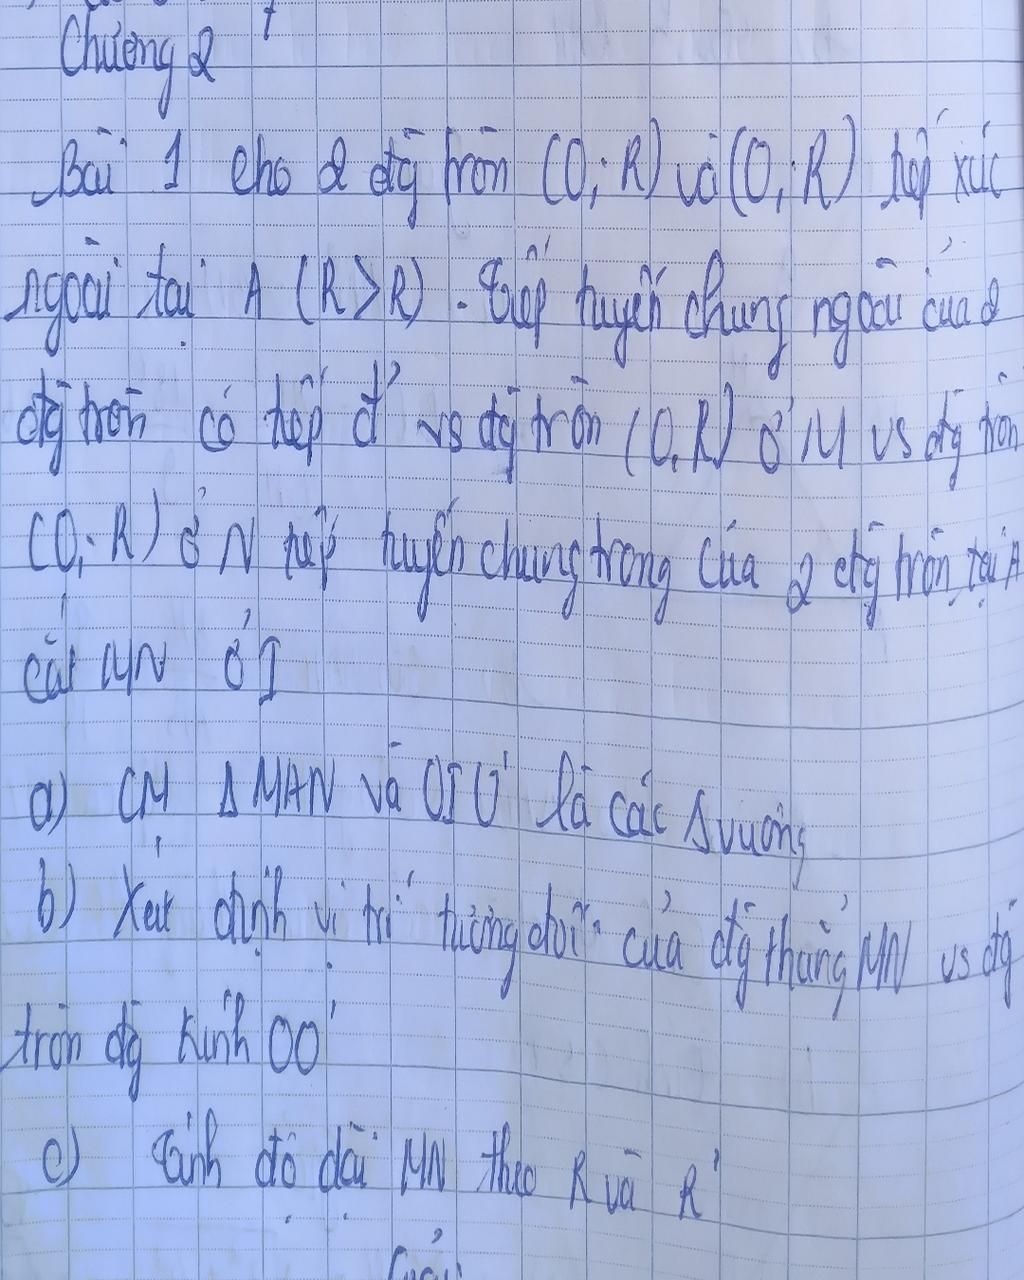 Chương 2
Bài 1 cho 2 đg tròn (O; R) và (O; R) tiếp xúc
ngoài tại A (R>R). Tiếp tuyến chung ngoài của 2
đg tròn có tiếp đ' vs đg tròn (O, R) ở M vs đg tròn
(O; R) ở N tiếp tuyến chung trong của 2 đg tròn tại A
cắt MN ở I
a) CM Δ MAN và OIO' là các Δ vuông
b) Xét định vị trí tương đối của đg thẳng MN vs đg
tròn đg kính OO'
c) Tính độ dài MN theo R và R'
Giải